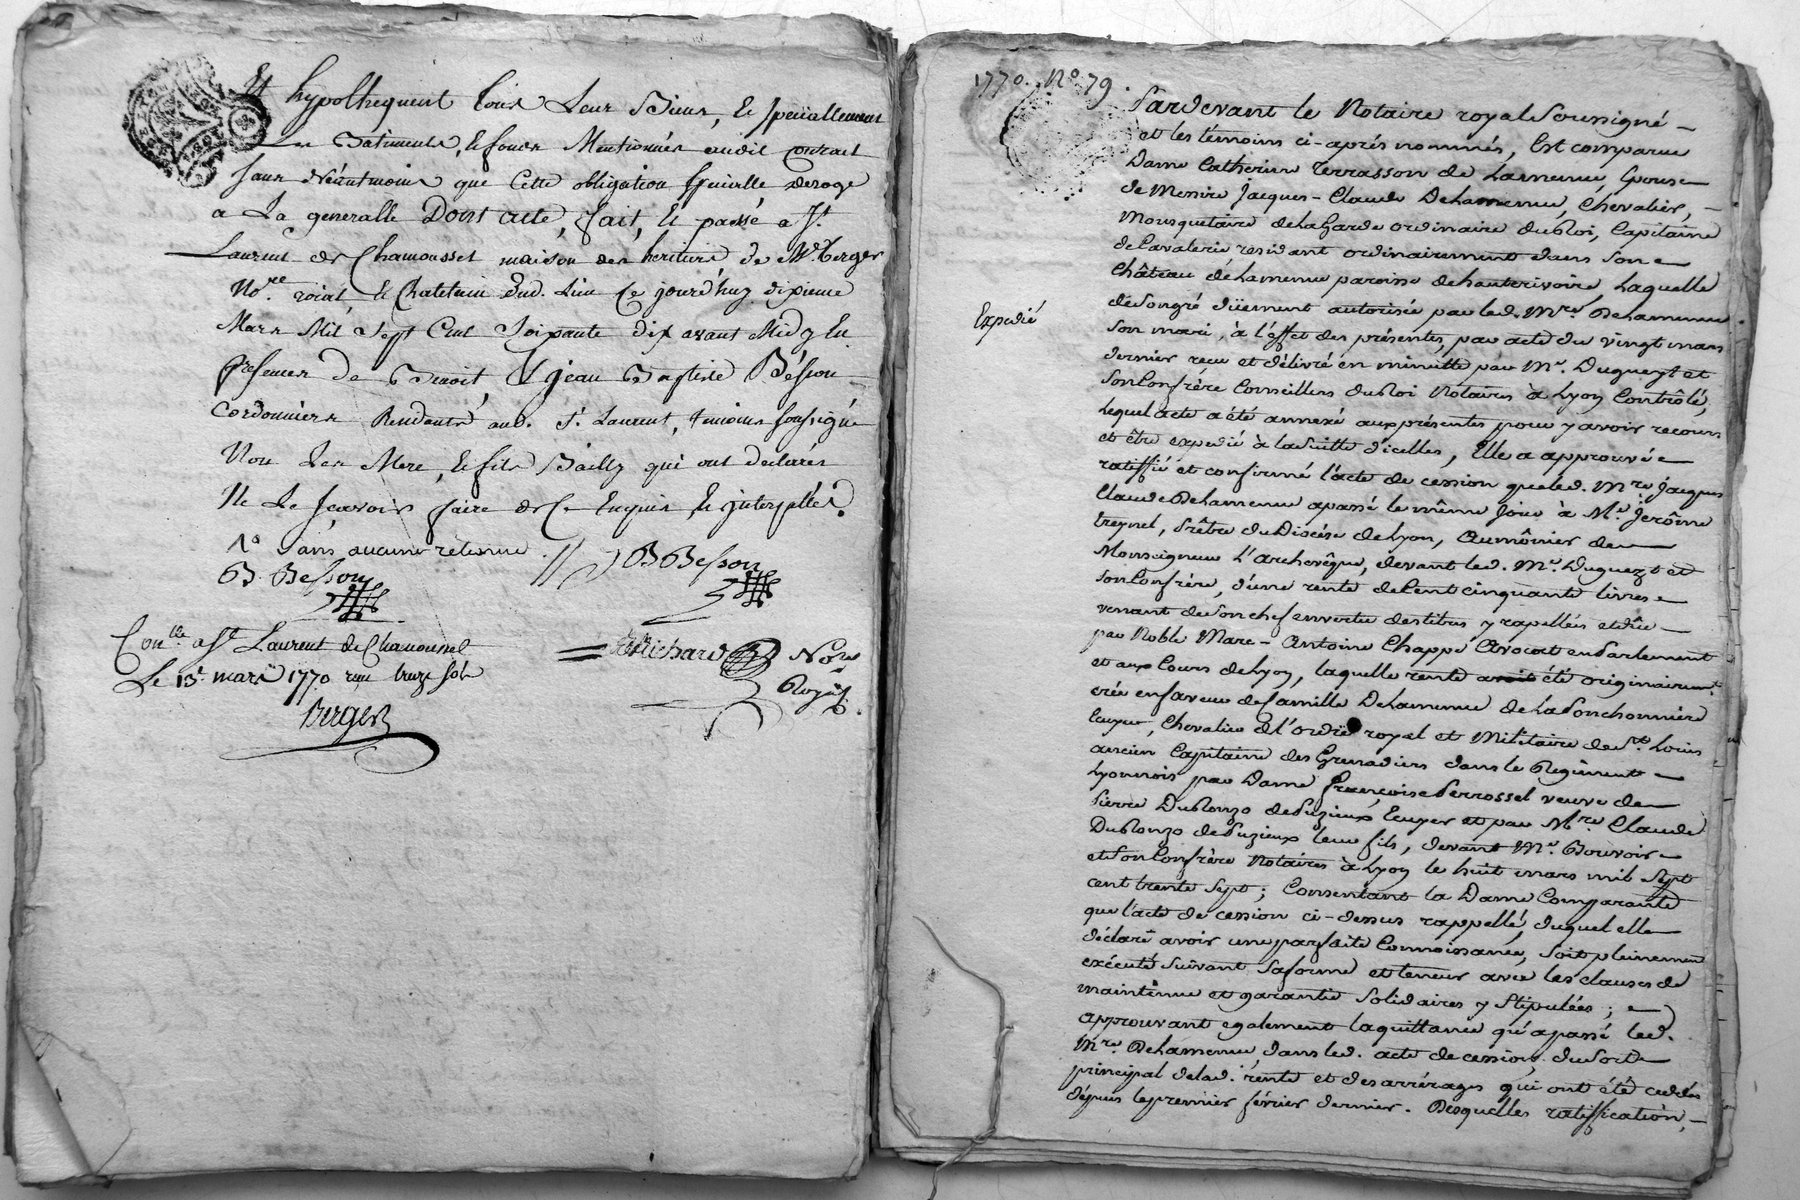 Et hypothequent tous Leur Biens, et speciallement
Les Batiments, et fonds Mentionnés audit contrat
sans néantmoins que Cette obligation speciale deroge
a La generalle Dont acte, fait, et passé a St
Laurent de Chamousset maison des heritiers de Me Berger
Nore roial, et Chatelain dud. Lieu Ce jourd'huy dixieme
Mars Mil Sept Cent Soixante dix avant Midy En
presences de Benoit, & jean Baptiste Besson
Cordonniers Residants aud. St Laurent, temoins soussignés
Non Les Mere, et fils Bailly qui ont declarés
Ne Le sçavoir faire de Ce Enquis et interpellés.
sans aucune retenue
B. Besson J B Besson
Conlle a St Laurent de Chamousset Richard Nore
Le 13e mars 1770 reçu treze sols Royal
Berger
1770. No. 79.
Pardevant le Notaire royal Soussigné
et les témoins ci-aprés nommés, Est comparue
Dame Catherine Terrasson de Lamenue, Epouse
de Messire Jacques-Claude Dehamenue, Chevalier,
Mousquetaire dela Garde ordinaire du Roi, Capitaine
de Cavalerie residant ordinairement dans son
Château paroisse dehauterivoire Laquelle
de son gré düement autorisée par led. Mre. Dehamenue
Expedié
son mari, à l'effet des présentes, par acte du vingt mars
dernier reçu et délivré en minutte par Me. Duguezt et
son Confrère Conseillers du Roi Notaires à Lyon Controlé,
Lequel acte a été annexé aux présentes pour y avoir recours
et être expedié à la Suitte d'icelles, Elle a approuvée
ratiffié et confirmé l'acte de cession que led. Mre. Jacques
Claude Dehamenue a passé le même Jour à Me. Jerôme
treynet, Prêtre du Diocése de Lyon, Aumônier de
Monseigneur L'archevêque, devant led. Me. Duguezt et
son Confrère, d'une rente de Cent cinquante livres
venant de son chef en vertu des titres y rapellés et düe
par Noble Marc-Antoine Chappe Avocat en Parlement
et aux Cours de Lyon, laquelle rente avoit été originairemt.
crée en faveur de Camille Dehamenue de la Ponchonniere
Ecuyer, Chevalier de l'ordre royal et Militaire de St. Louis
ancien Capitaine des Grenadiers dans le Regiment
Lyonnois par Dame Françoise Perrossel veuve de
Pierre Dublonzo de Puzieux Ecuyer et par Mre. Claude
Dublonzo de Puzieux leur fils, devant Me. Bourvoir
et son Confrère Notaires à Lyon le huit mars mil Sept
cent trente Sept; Consentant la Dame Comparante
que l'acte de cession ci-dessus rappellé, duquel elle
déclaré avoir une parfaite Connoissance, Soit pleinement
exécuté Suivant sa forme et teneur avec les clauses de
maintenue et garantie Solidaires y Stipulées;
approuvant egalement la quittance qu'a passé led.
Mre. Dehamenue, dans led. acte de cession, du Sort
principal de lad. rente et des arrérages qui ont été cedés
depuis le premier février dernier. Desquelles ratiffication,